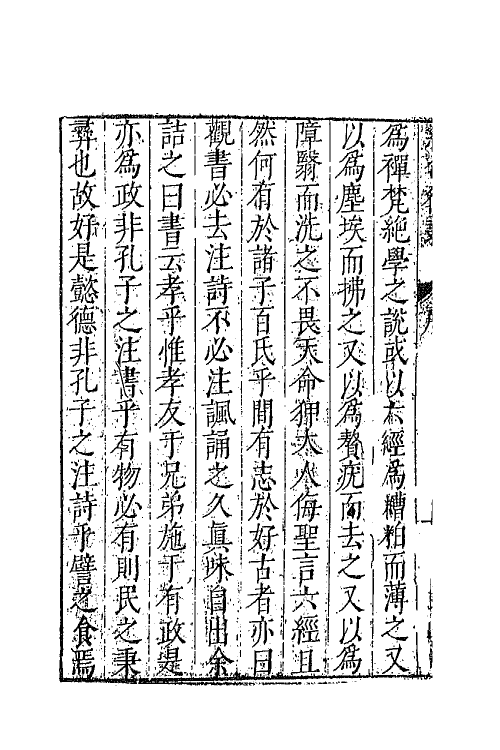 為禪梵絶學之說或以六經為糟粕而薄之又
以為塵埃而拂之又以為贅疣而去之又以為
障翳而洗之不畏天命狎大人侮聖言六經且
然何有於諸子百氏乎間有志於好古者亦曰
觀書必去注詩不必注諷誦之久真味自出余
詰之曰書云孝乎惟孝友于兄弟施于有政是
亦為政非孔子之注書乎有物必有則民之秉
彛也故好是懿德非孔子之注詩乎譬之食焉